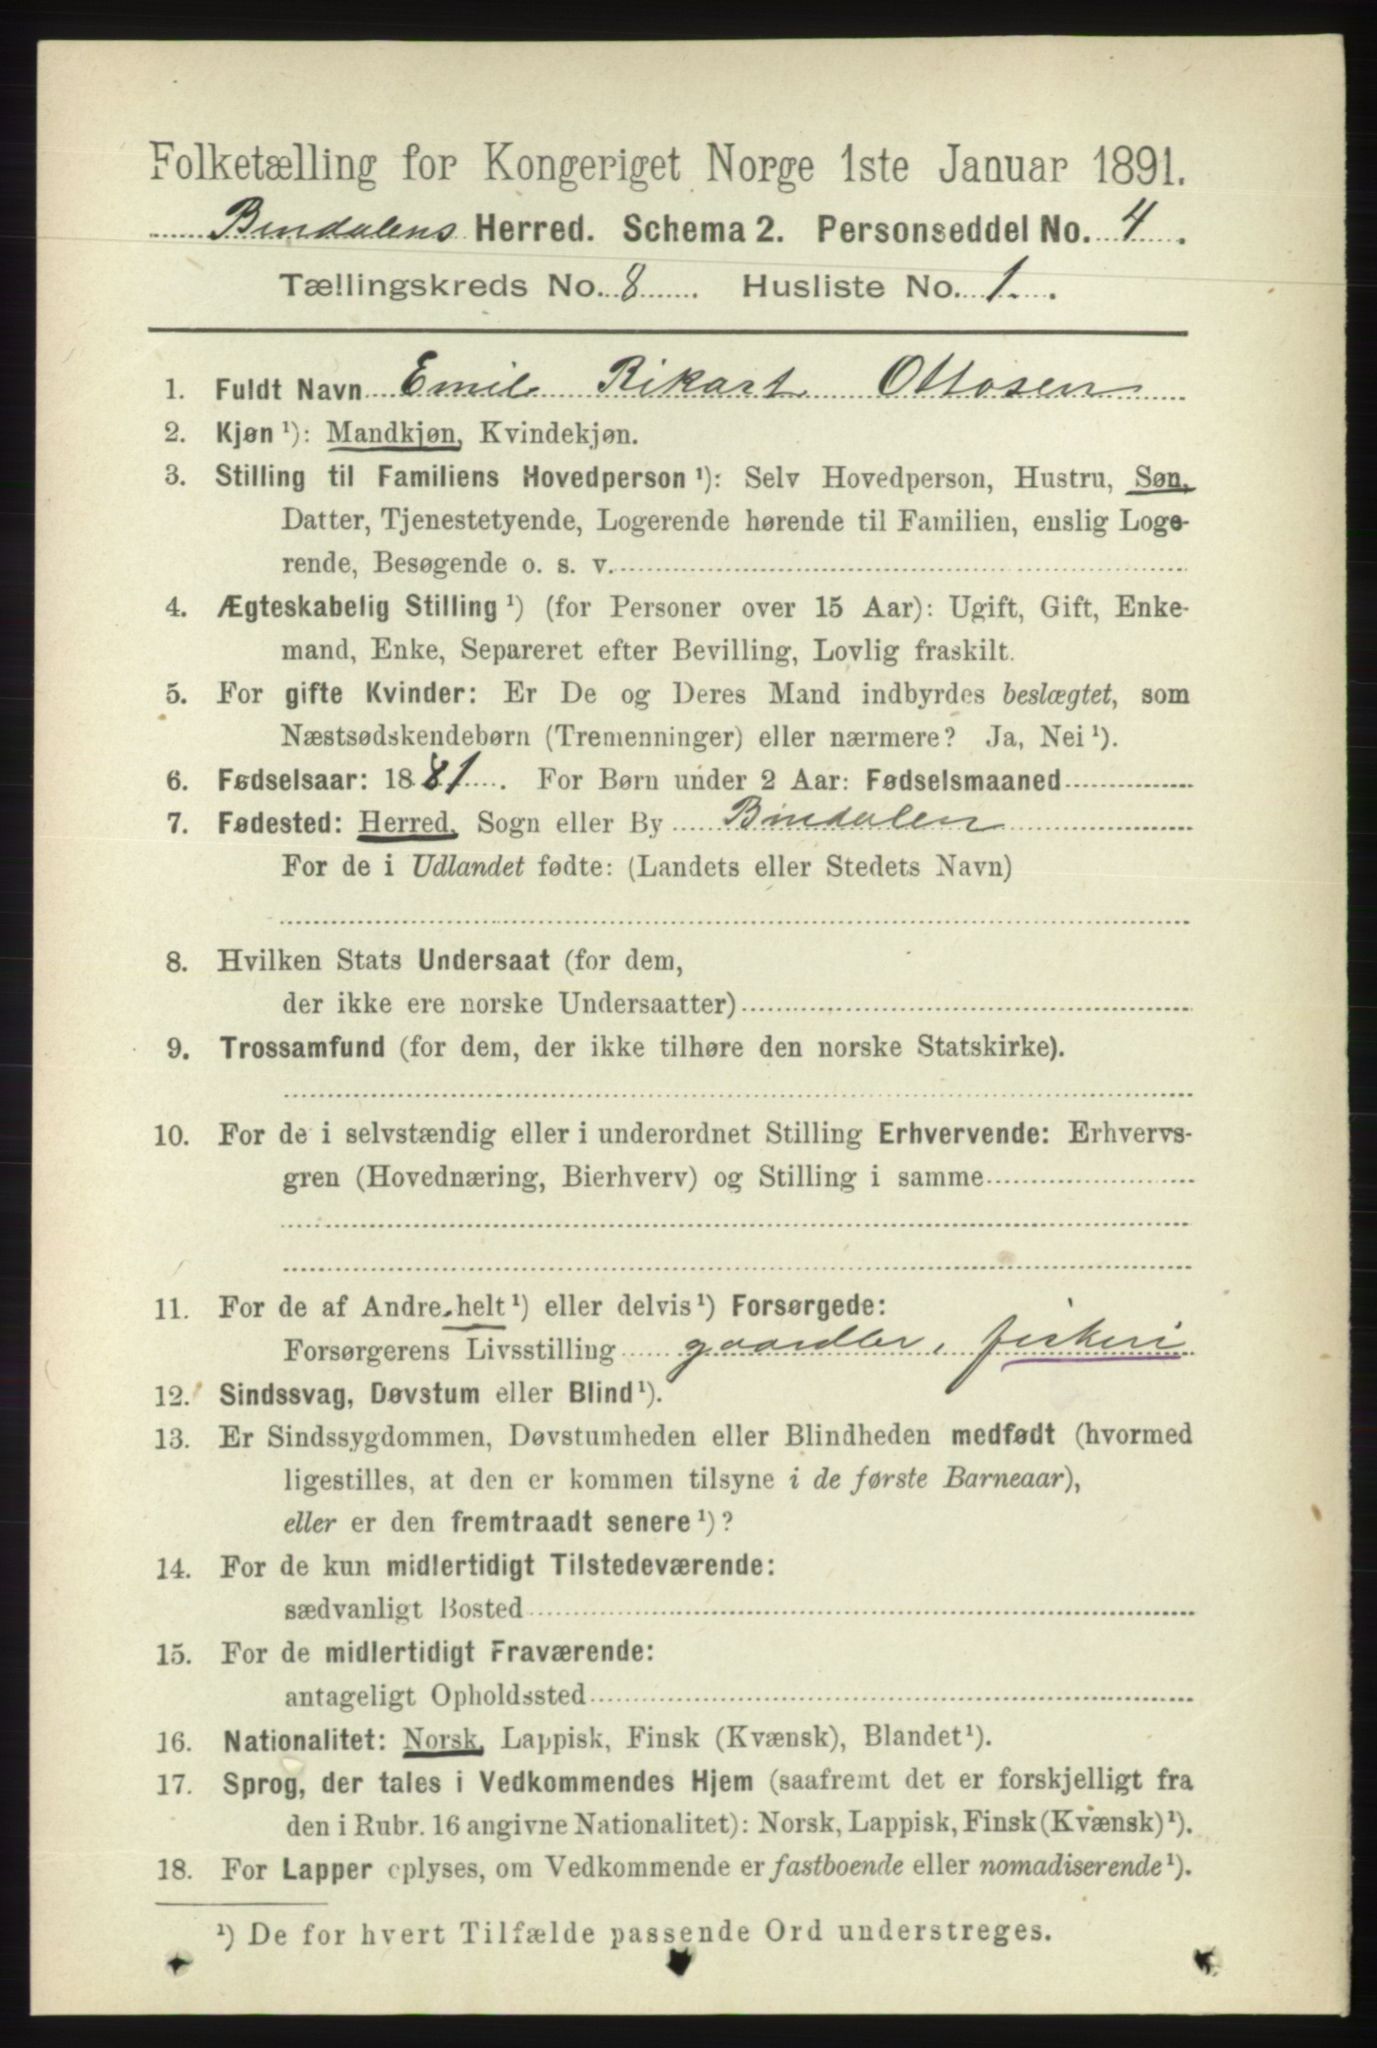 Folketælling for Kongeriget Norge 1ste Januar 1891.
Bindalens Herred. Schema 2. Personseddel No. 4.
Tællingskreds No. 8. Husliste No. 1.
1. Fuldt Navn Emil Rikart Ottosen
2. Kjøn¹): Mandkjøn, Kvindekjøn.
3. Stilling til Familiens Hovedperson¹): Selv Hovedperson, Hustru, Søn,
Datter, Tjenestetyende, Logerende hørende til Familien, enslig Loge-
rende, Besøgende o. s. v.
4. Ægteskabelig Stilling¹) (for Personer over 15 Aar): Ugift, Gift, Enke-
mand, Enke, Separeret efter Bevilling, Lovlig fraskilt.
5. For gifte Kvinder: Er De og Deres Mand indbyrdes beslægtet, som
Næstsødskendebørn (Tremenninger) eller nærmere? Ja, Nei¹).
6. Fødselsaar: 1881. For Børn under 2 Aar: Fødselsmaaned
7. Fødested: Herred, Sogn eller By Bindalen
For de i Udlandet fødte: (Landets eller Stedets Navn)
8. Hvilken Stats Undersaat (for dem,
der ikke ere norske Undersaatter)
9. Trossamfund (for dem, der ikke tilhøre den norske Statskirke).
10. For de i selvstændig eller i underordnet Stilling Erhvervende: Erhvervs-
gren (Hovednæring, Bierhverv) og Stilling i samme
11. For de af Andre helt¹) eller delvis¹) Forsørgede:
Forsørgerens Livsstilling gaardbr, fiskeri
12. Sindssvag, Døvstum eller Blind¹).
13. Er Sindssygdommen, Døvstumheden eller Blindheden medfødt (hvormed
ligestilles, at den er kommen tilsyne i de første Barneaar),
eller er den fremtraadt senere¹)?
14. For de kun midlertidigt Tilstedeværende:
sædvanligt Bosted
15. For de midlertidigt Fraværende:
antageligt Opholdssted
16. Nationalitet: Norsk, Lappisk, Finsk (Kvænsk), Blandet¹).
17. Sprog, der tales i Vedkommendes Hjem (saafremt det er forskjelligt fra
den i Rubr. 16 angivne Nationalitet): Norsk, Lappisk, Finsk (Kvænsk)¹).
18. For Lapper oplyses, om Vedkommende er fastboende eller nomadiserende¹).
¹) De for hvert Tilfælde passende Ord understreges.